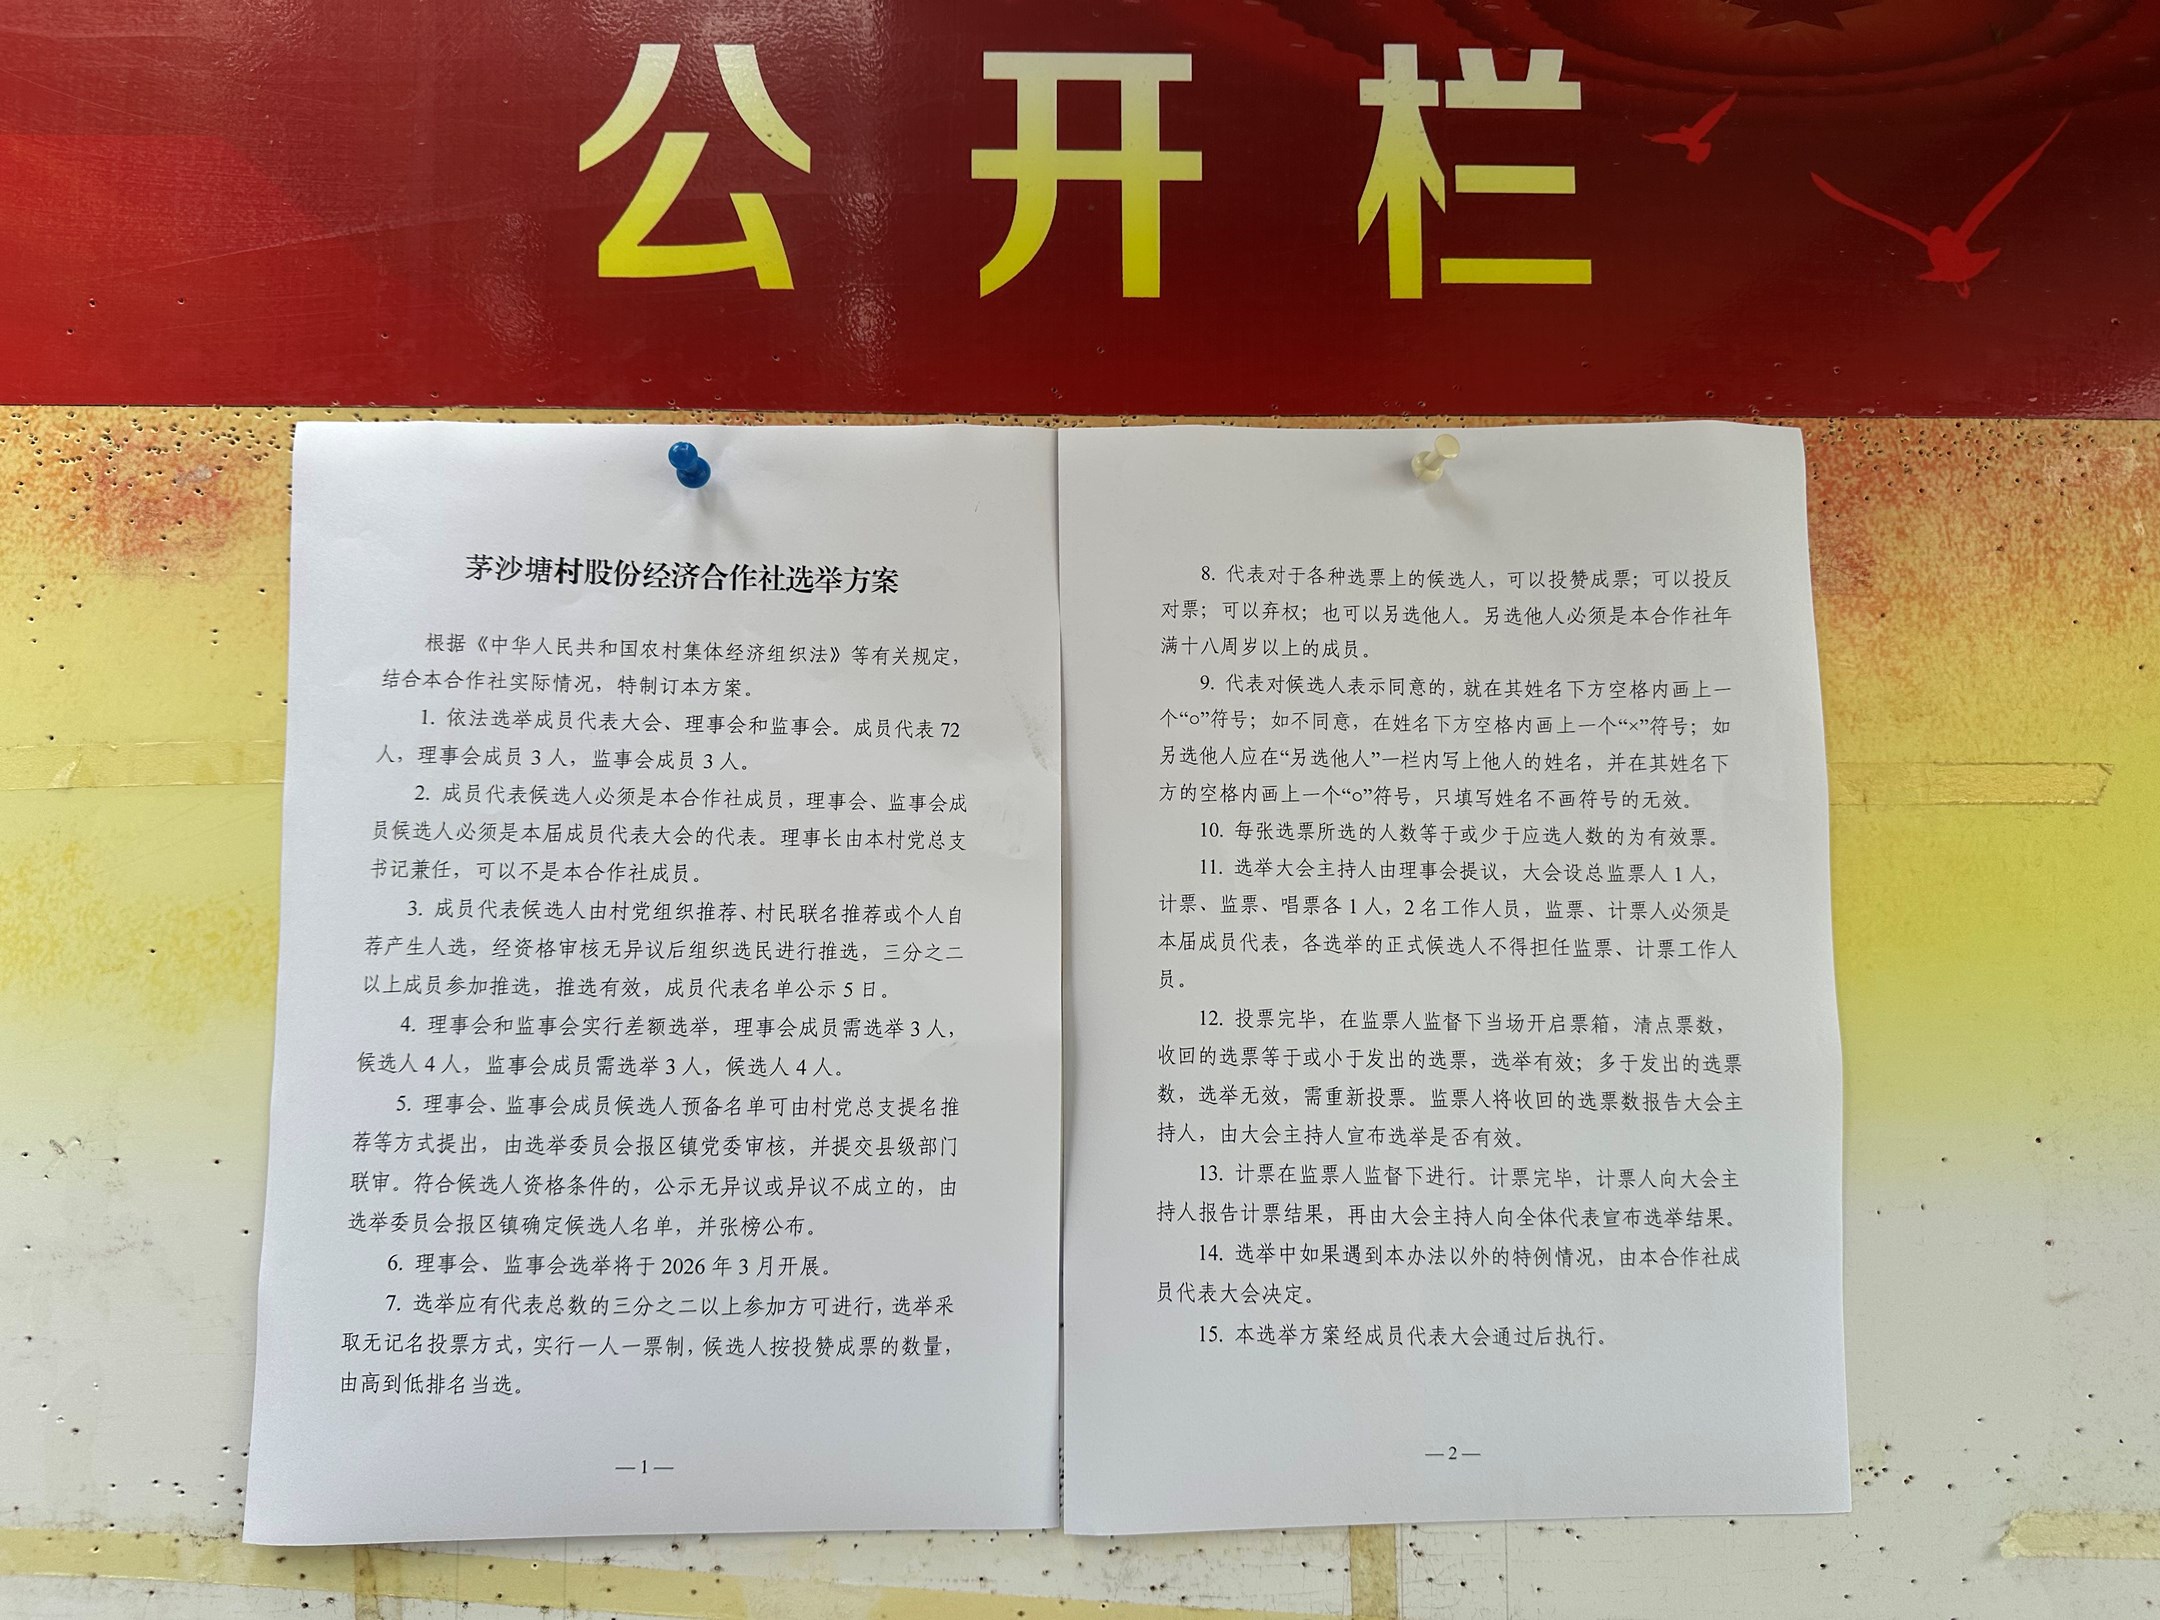 公开栏
茅沙塘村股份经济合作社选举方案
根据《中华人民共和国农村集体经济组织法》等有关规定，
结合本合作社实际情况，特制订本方案。
1. 依法选举成员代表大会、理事会和监事会。成员代表 72
人，理事会成员 3 人，监事会成员 3 人。
2. 成员代表候选人必须是本合作社成员，理事会、监事会成
员候选人必须是本届成员代表大会的代表。理事长由本村党总支
书记兼任，可以不是本合作社成员。
3. 成员代表候选人由村党组织推荐、村民联名推荐或个人自
荐产生人选，经资格审核无异议后组织选民进行推选，三分之二
以上成员参加推选，推选有效，成员代表名单公示 5 日。
4. 理事会和监事会实行差额选举，理事会成员需选举 3 人，
候选人 4 人，监事会成员需选举 3 人，候选人 4 人。
5. 理事会、监事会成员候选人预备名单可由村党总支提名推
荐等方式提出，由选举委员会报区镇党委审核，并提交县级部门
联审。符合候选人资格条件的，公示无异议或异议不成立的，由
选举委员会报区镇确定候选人名单，并张榜公布。
6. 理事会、监事会选举将于 2026 年 3 月开展。
7. 选举应有代表总数的三分之二以上参加方可进行，选举采
取无记名投票方式，实行一人一票制，候选人按投赞成票的数量，
由高到低排名当选。
— 1 —
8. 代表对于各种选票上的候选人，可以投赞成票；可以投反
对票；可以弃权；也可以另选他人。另选他人必须是本合作社年
满十八周岁以上的成员。
9. 代表对候选人表示同意的，就在其姓名下方空格内画上一
个“○”符号；如不同意，在姓名下方空格内画上一个“×”符号；如
另选他人应在“另选他人”一栏内写上他人的姓名，并在其姓名下
方的空格内画上一个“○”符号，只填写姓名不画符号的无效。
10. 每张选票所选的人数等于或少于应选人数的为有效票。
11. 选举大会主持人由理事会提议，大会设总监票人 1 人，
计票、监票、唱票各 1 人，2 名工作人员，监票、计票人必须是
本届成员代表，各选举的正式候选人不得担任监票、计票工作人
员。
12. 投票完毕，在监票人监督下当场开启票箱，清点票数，
收回的选票等于或小于发出的选票，选举有效；多于发出的选票
数，选举无效，需重新投票。监票人将收回的选票数报告大会主
持人，由大会主持人宣布选举是否有效。
13. 计票在监票人监督下进行。计票完毕，计票人向大会主
持人报告计票结果，再由大会主持人向全体代表宣布选举结果。
14. 选举中如果遇到本办法以外的特例情况，由本合作社成
员代表大会决定。
15. 本选举方案经成员代表大会通过后执行。
— 2 —